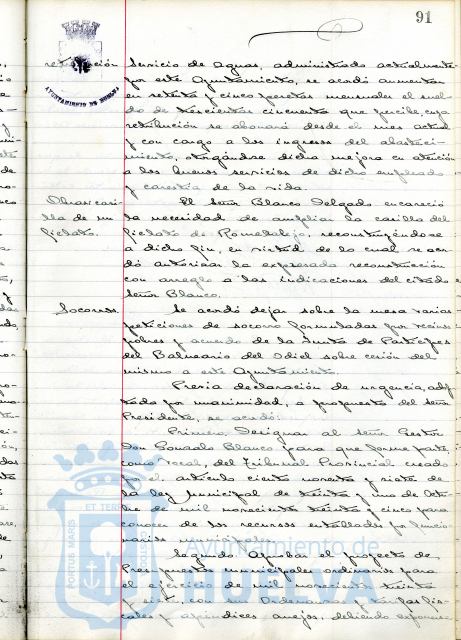 91
AYUNTAMIENTO DE HUELVA
retribución Servicio de Aguas, administrado actualmente
por este Ayuntamiento, se acordó aumentar
en setenta y cinco pesetas mensuales el suel-
do de trescientas cincuenta que percibe, cuya
retribución se abonará desde el mes actual
y con cargo a los ingresos del abasteci-
miento, otorgándose dicha mejora en atención
a los buenos servicios de dicho empleado
y carestía de la vida.
Obras casi-
lla de un
fielato.
El Señor Blanco Delgado encareció
la necesidad de ampliar la casilla del
fielato de Romeralejo, reconstruyéndose
a dicho fin, en virtud de lo cual se acor-
dó autorizar la expresada reconstrucción
con arreglo a las indicaciones del citado
Señor Blanco.
Socorros.
Se acordó dejar sobre la mesa varias
peticiones de socorro formuladas por vecinos
pobres y acuerdo de la Junta de Partícipes
del Balneario del Odiel sobre cesión del
mismo a este Ayuntamiento.
Previa declaración de urgencia, adop-
tada por unanimidad, a propuesta del Señor
Presidente, se acordó:
Primero. Designar al Señor Gestor
Don Gonzalo Blanco para que forme parte,
como Vocal, del Tribunal Provincial creado
por el artículo ciento noventa y siete de
la ley Municipal de treinta y uno de Octu-
bre de mil novecientos treinta y cinco para
conocer de los recursos entablados por funcio-
narios municipales.
Segundo. Aprobar el proyecto de
Presupuestos municipales ordinarios para
el ejercicio de mil novecientos treinta
y siete, con sus Ordenanzas y tarifas fis-
cales y apéndices anejos, debiendo exponer-
PORTUS MARIS
ET TERRAE
CUSTODIA
Ayuntamiento de
HUELVA